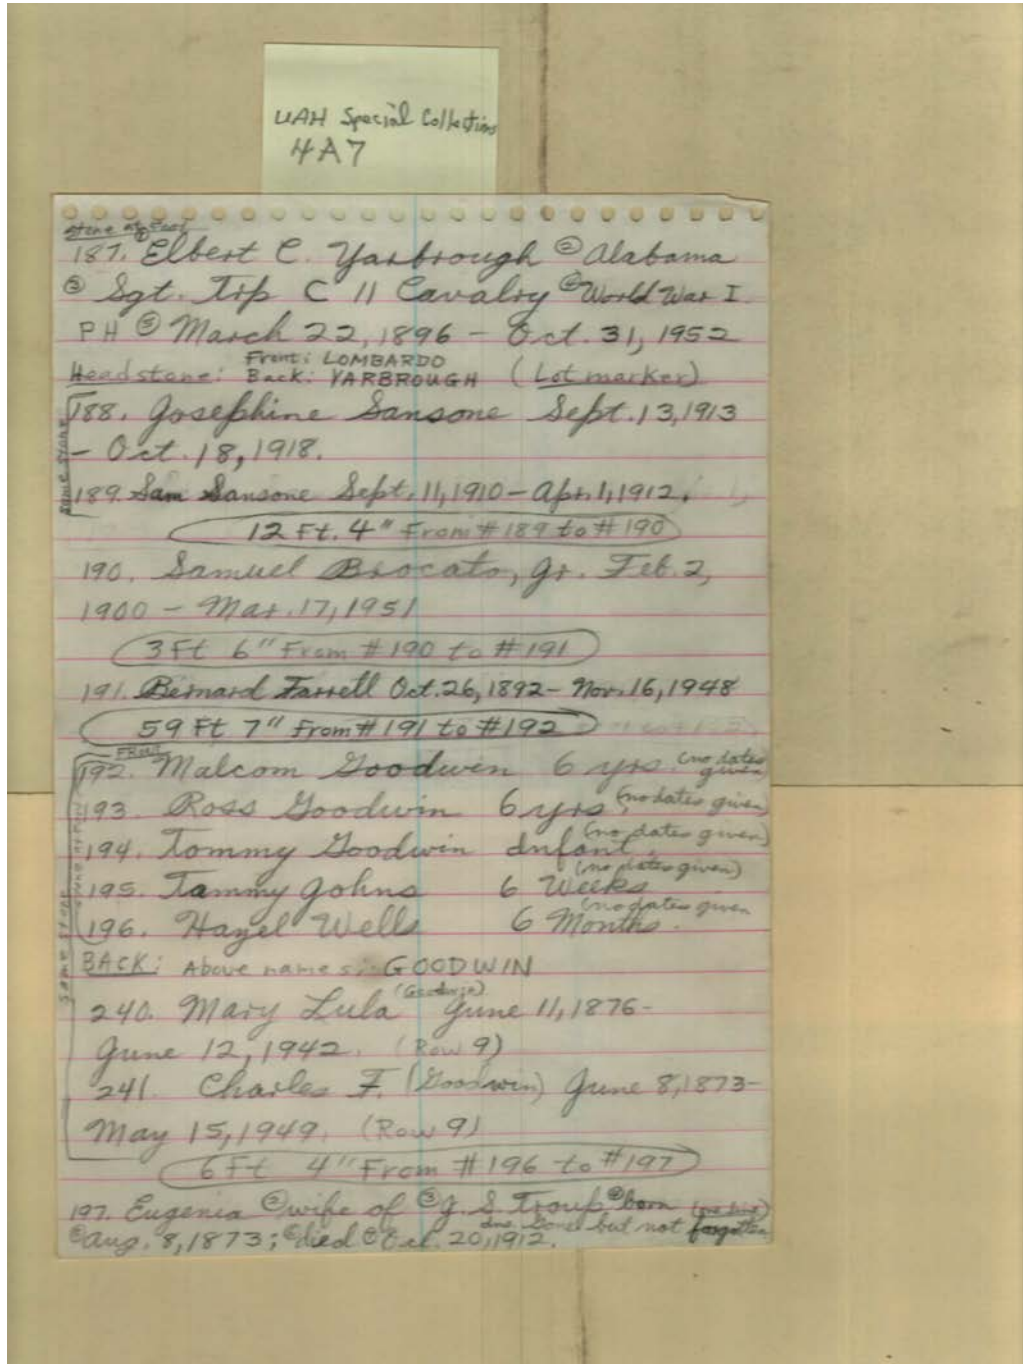 UAH Special Collections
4A7
stone at foot
187. Elbert C. Yarbrough ② Alabama
③ Sgt. Trp C 11 Cavalry ④ World War I
PH ⑤ March 22, 1896 - Oct. 31, 1952
Front: LOMBARDO
Headstone: Back: YARBROUGH (Lot marker)
188. Josephine Sansone Sept. 13, 1913
- Oct. 18, 1918.
same stone
189. Sam Sansone Sept. 11, 1910 - Apr. 1, 1912.
12 Ft. 4" From #189 to #190
190. Samuel Brocato, Jr. Feb. 2,
1900 - Mar. 17, 1951
3 Ft 6" From #190 to #191
191. Bernard Farrell Oct. 26, 1892 - Nov. 16, 1948
59 Ft 7" From #191 to #192
FRONT
192. Malcom Goodwin 6 yrs. (no dates given)
193. Ross Goodwin 6 yrs. (no dates given)
194. Tommy Goodwin Infant. (no dates given)
195. Tammy Johns 6 Weeks (no dates given)
196. Hazel Wells 6 Months. (no dates given
same stone
BACK: Above names: GOODWIN
240. Mary Lula (Goodwin) June 11, 1876 -
June 12, 1942. (Row 9)
241. Charles F. (Goodwin) June 8, 1873 -
May 15, 1949. (Row 9)
6 Ft 4" From #196 to #197
197. Eugenia ② wife of ③ J. S. Troup ④ born
Aug. 8, 1873; died Oct. 20, 1912. Gone but not forgotten